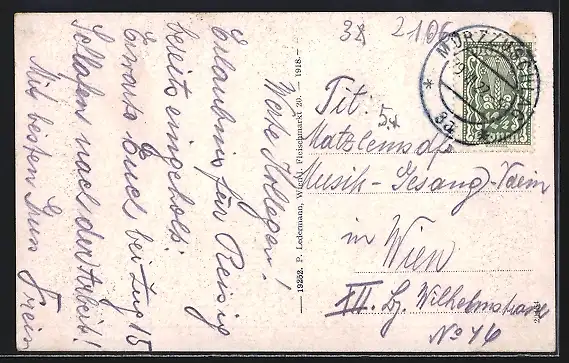 38 2106
MÜRZZUSCHLAG
Werte Kollegen!
Erlaubnis für Reisig
bereits eingeholt.
Erwarte Euch bei Zug 15
Schlafen nach der Arbeit!
Mit besten Gruss
19252. P. Ledermann, Wien I. Fleischmarkt 20. — 1918.—
Tit.
Matzleinsdf.
Musik-Gesang-Verein
in Wien
XII. Bz. Wilhelmstrasse
No 46